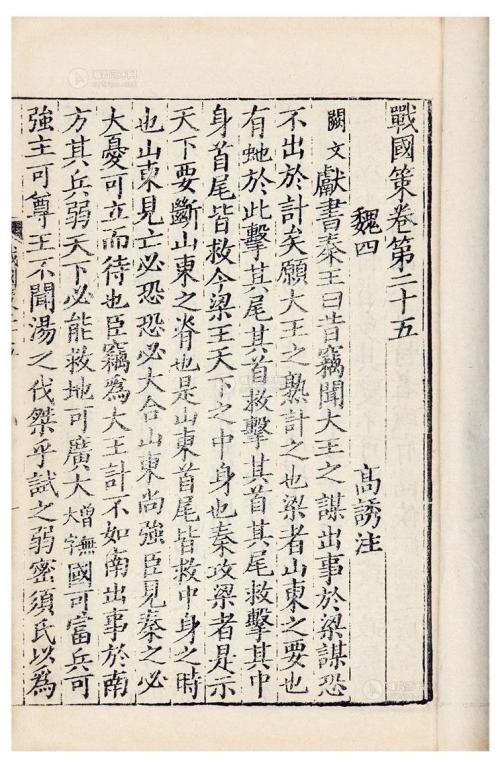 戰國策卷第二十五
魏四　高誘注
闕文獻書秦王曰昔竊聞大王之謀出事於梁謀恐
不出於計矣願大王之熟計之也梁者山東之要也
有虵於此擊其尾其首救擊其首其尾救擊其中
身首尾皆救今梁王天下之中身也秦攻梁者是示
天下要斷山東之脊也是山東首尾皆救中身之時
也山東見亡必恐恐必大合山東尚強臣見秦之必
大憂可立而待也臣竊為大王計不如南出事於南
方其兵弱天下必能救地可廣大曾無大字國可富兵可
強主可尊王不聞湯之伐桀乎試之弱密須氏以為